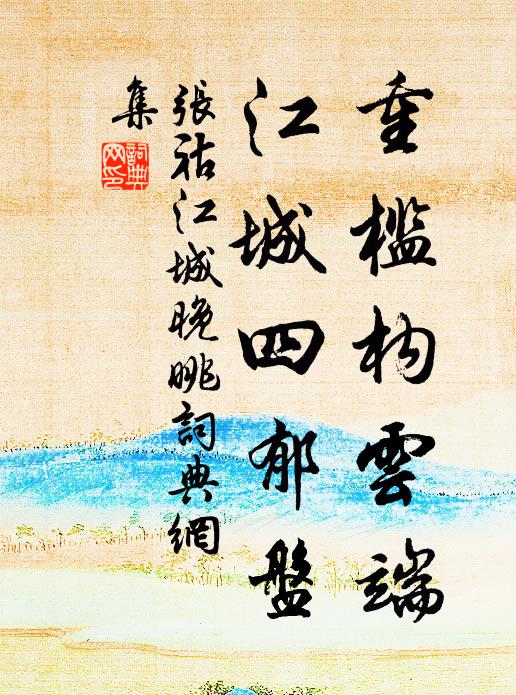 重槛构雲端
江城四郁盤
張祜江城晚眺詞典網
集
詞典網印